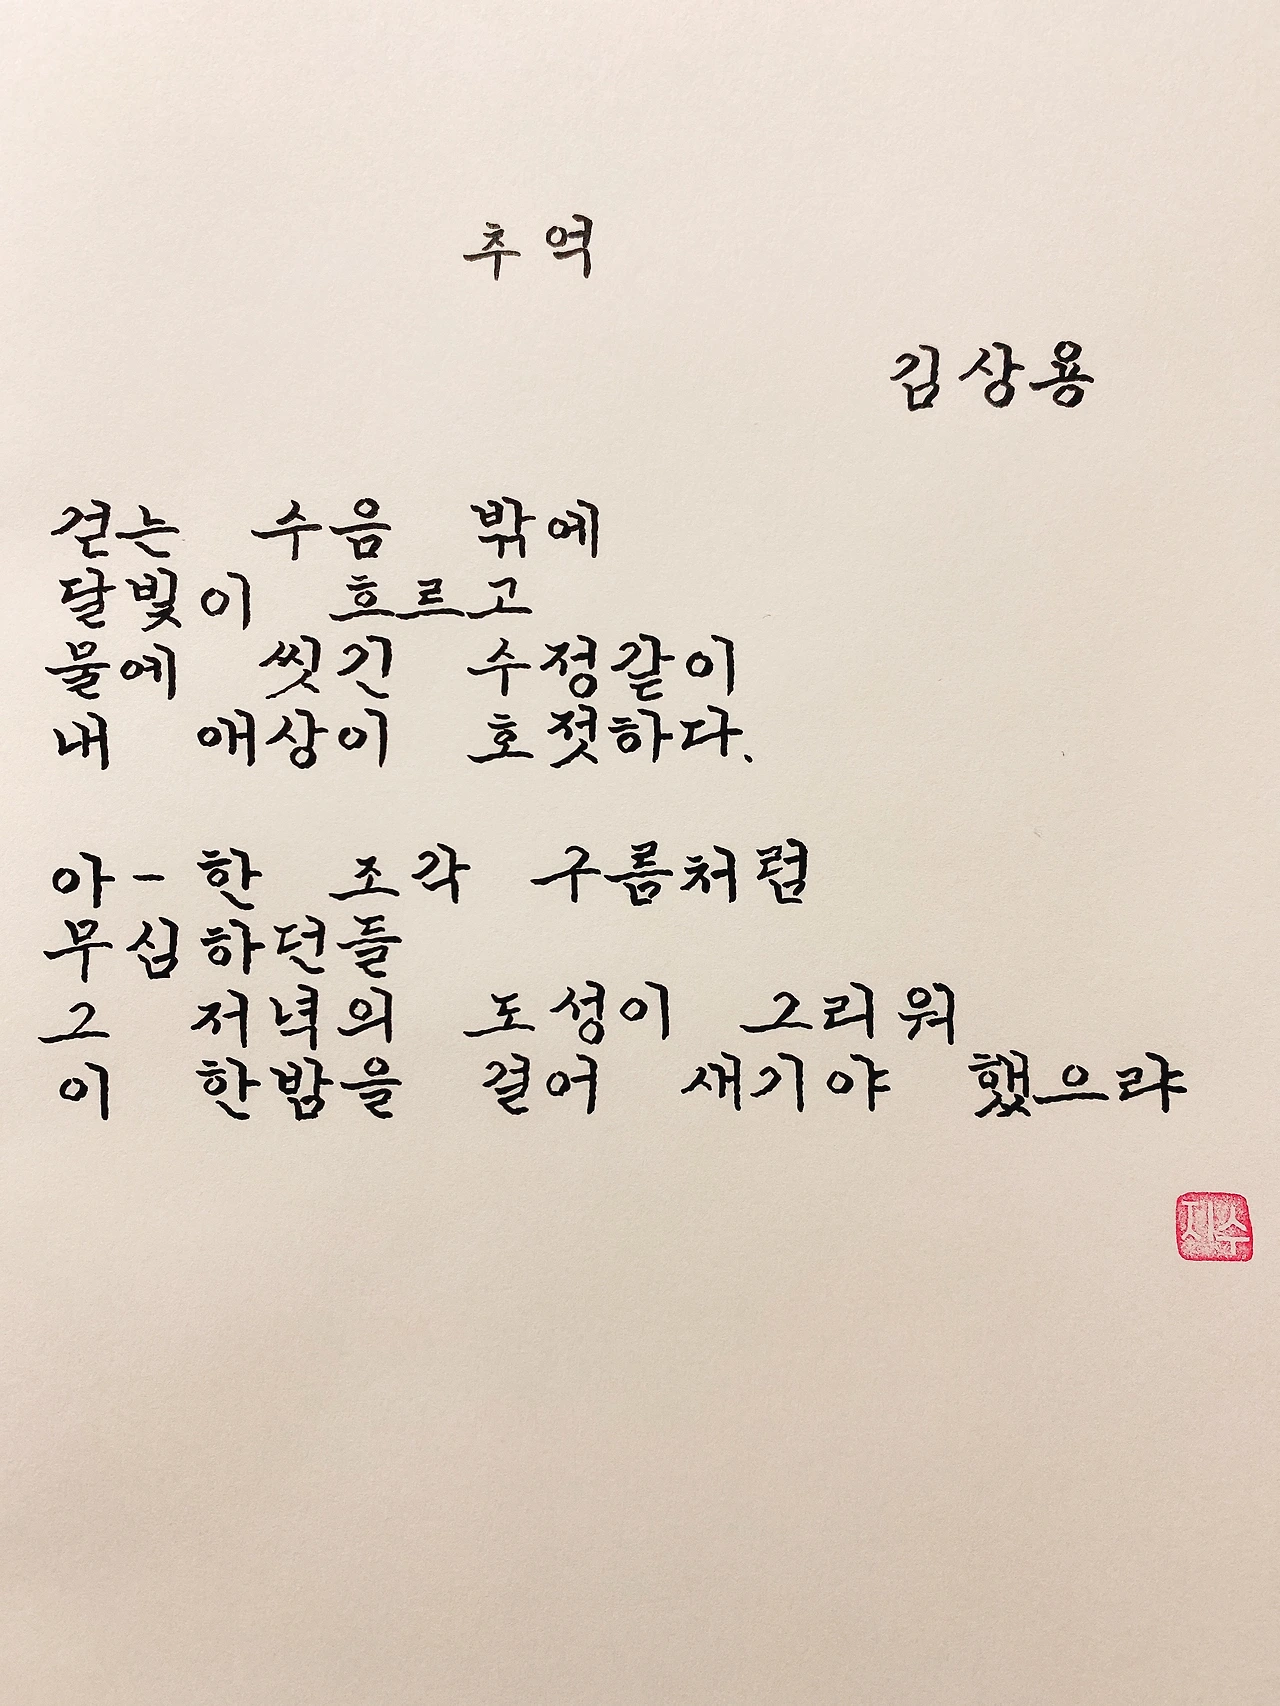 추억
김상용
걷는 수음 밖에
달빛이 흐르고
물에 씻긴 수정같이
내 애상이 호젓하다.
아-한 조각 구름처럼
무심하던들
그 저녁의 도성이 그리워
이 한밤을 걸어 새기야 했으랴
지수